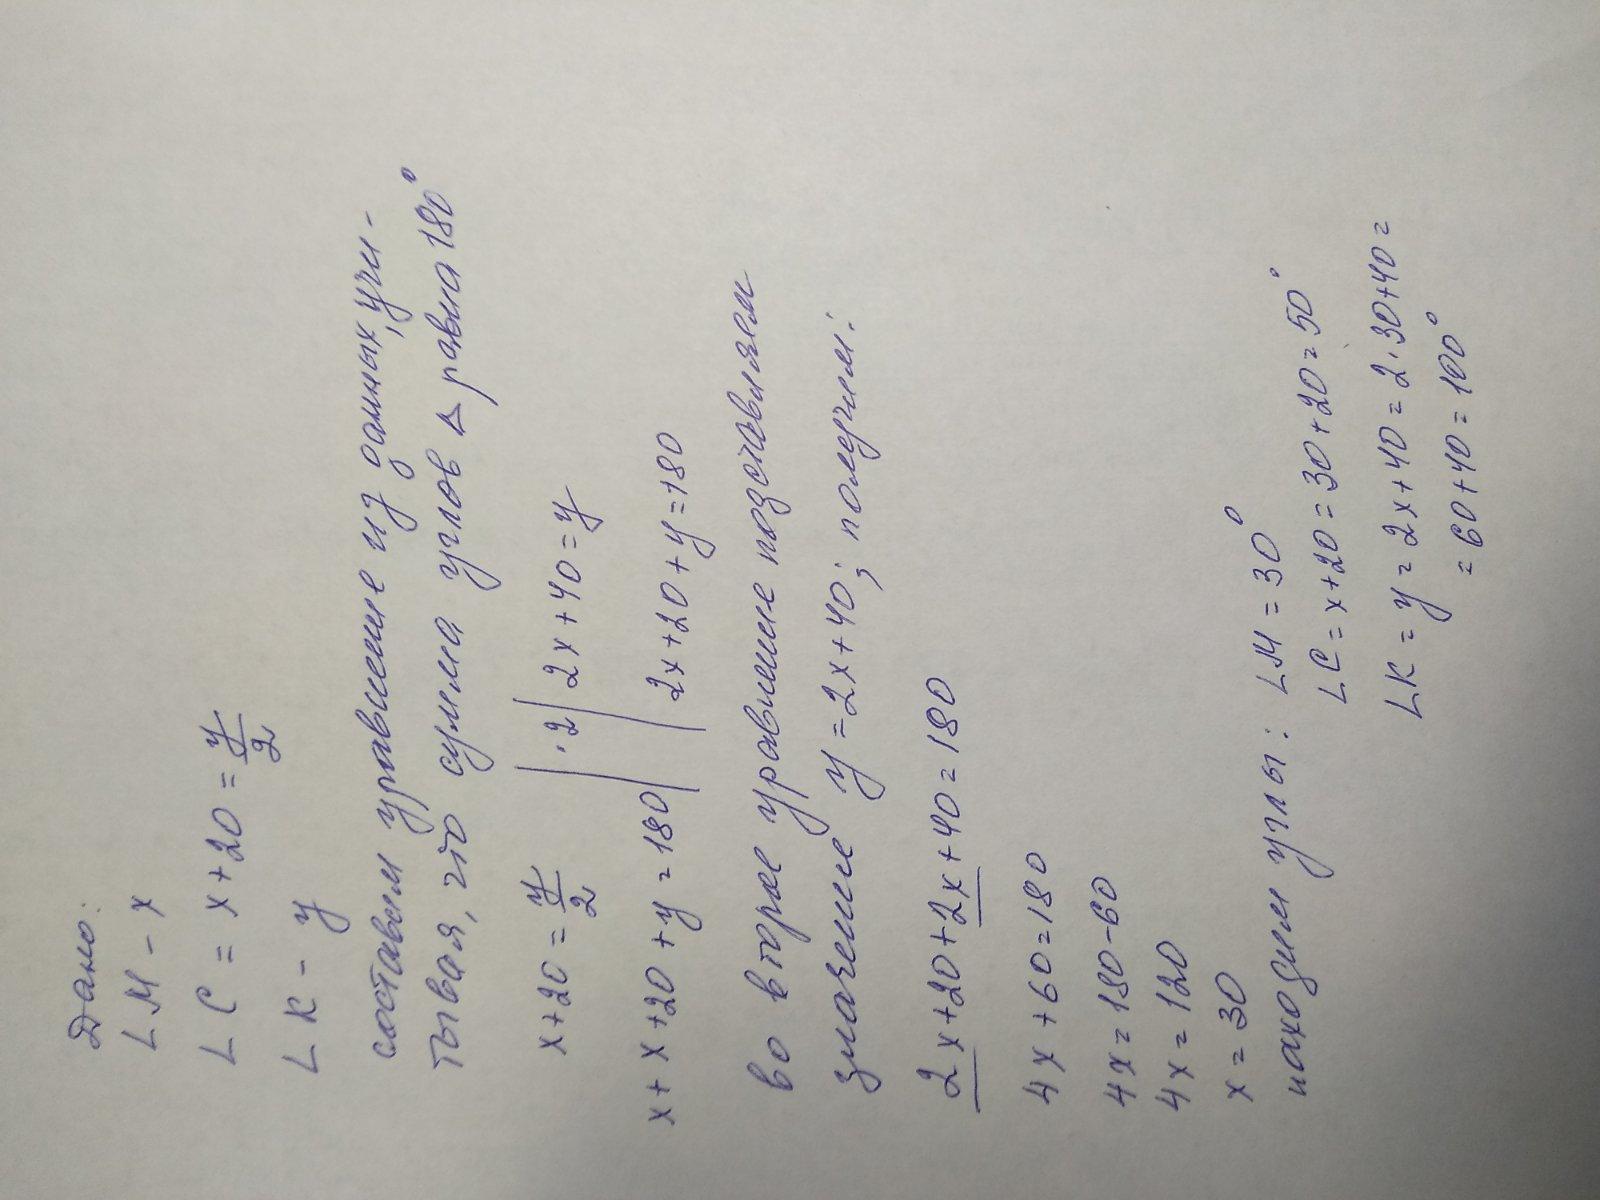 Дано:
∟M - x
∟C = x+20 = y/2
∟K - y
составим уравнение из данных, учи-
тывая, что сумма углов △ равна 180°
x+20 = y/2 | ·2 | 2x+40=y
x+x+20+y=180 | 2x+20+y=180
во второе уравнение подставляем
значение y=2x+40; получим:
2x+20+2x+40=180
4x+60=180
4x=180-60
4x=120
x=30
находим углы: ∟M=30°
∟C=x+20=30+20=50°
∟K=y=2x+40=2·30+40=
=60+40=100°